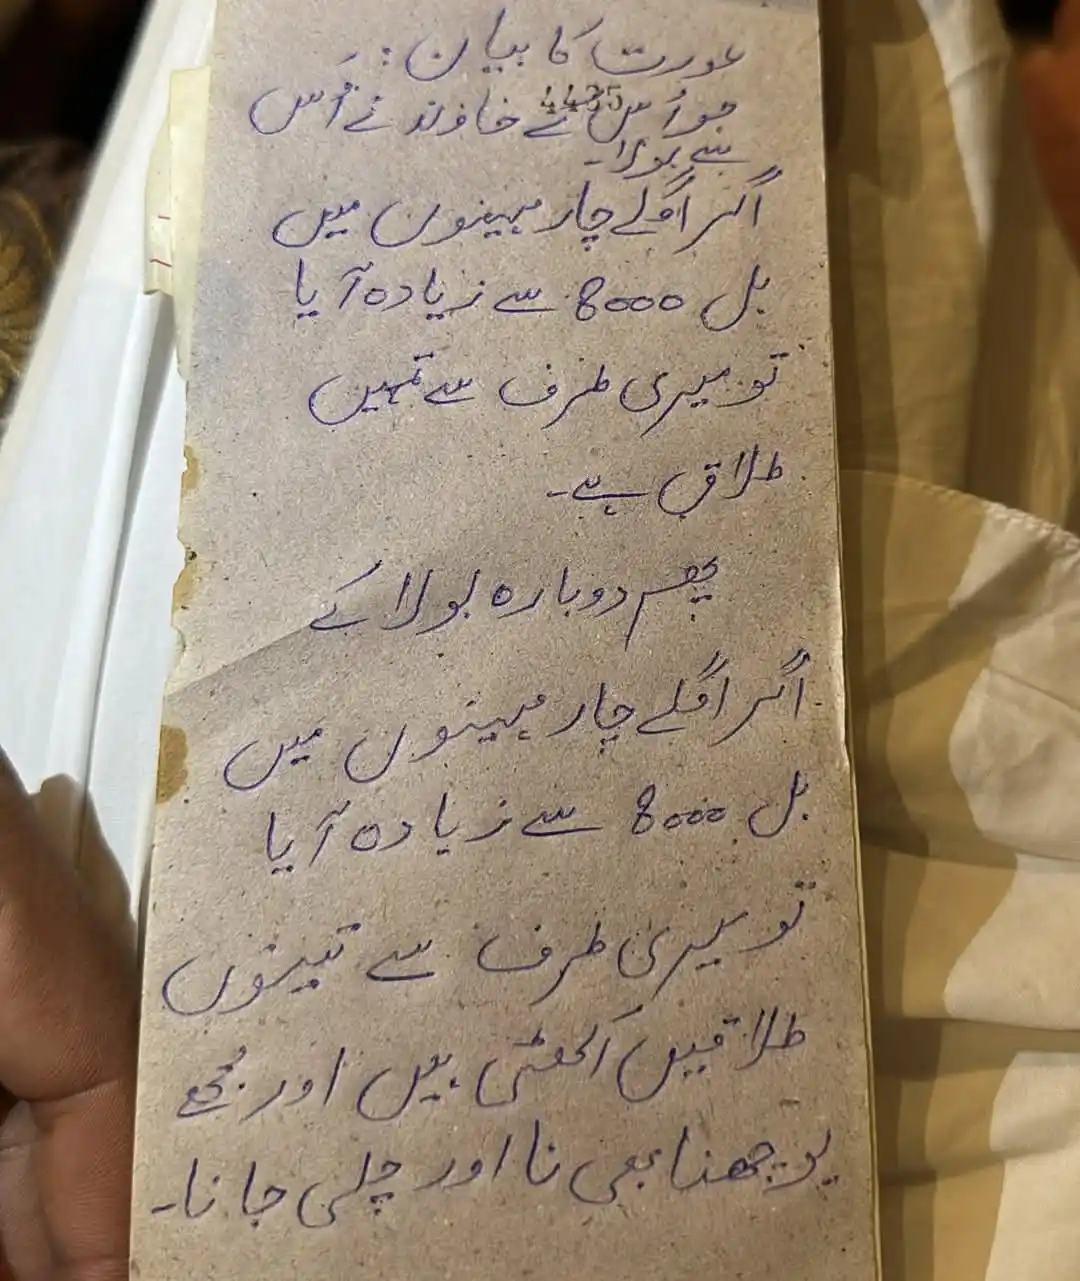 عورت کا بیان:
جو اُس کے خاوند نے اُس
4435
سے بولا۔
اگر اگلے چار مہینوں میں
بل 8000 سے زیادہ آیا
تو میری طرف سے تمہیں
طلاق ہے۔
پھر دوبارہ بولا کے
اگر اگلے چار مہینوں میں
بل 8000 سے زیادہ آیا
تو میری طرف سے تینوں
طلاقیں اکھٹی ہیں اور مجھے
پوچھنا بھی نا اور چلی جانا۔